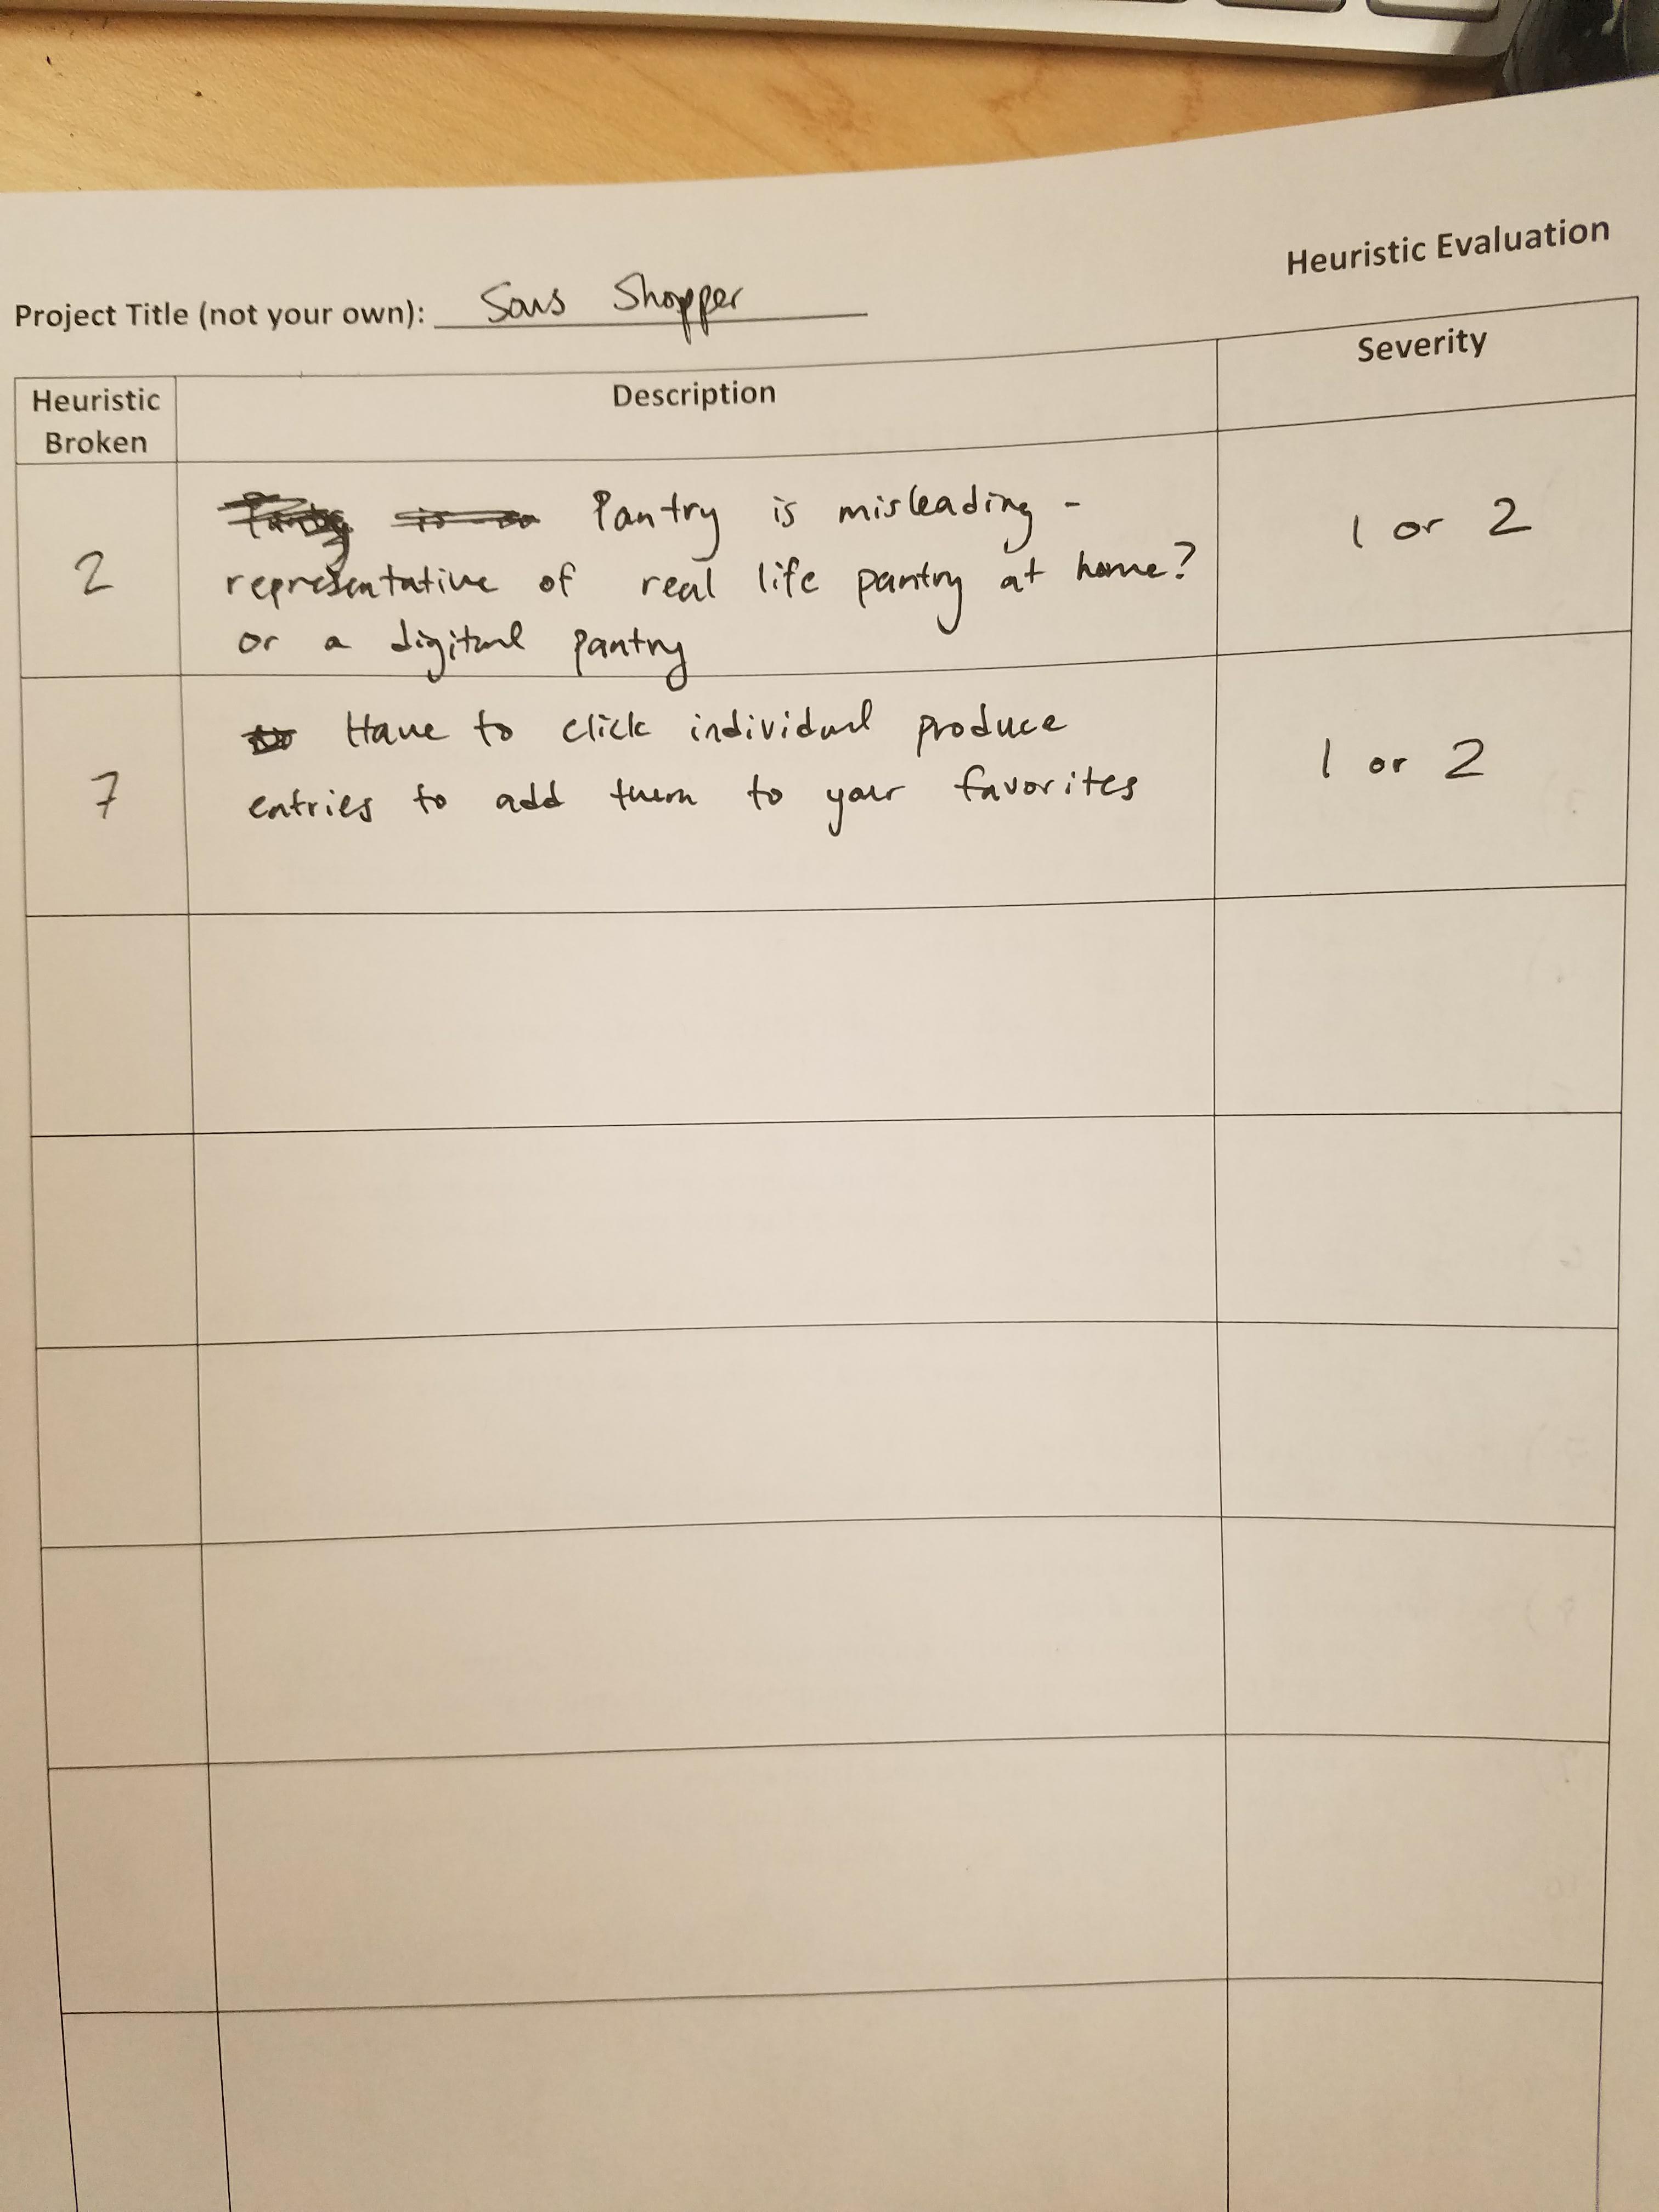 Heuristic Evaluation
Project Title (not your own): Sous Shopper
Heuristic Broken
Description
Severity
2
Pantry is misleading -
representative of real life pantry at home?
or a digital pantry
1 or 2
7
Have to click individual produce
entries to add them to your favorites
1 or 2